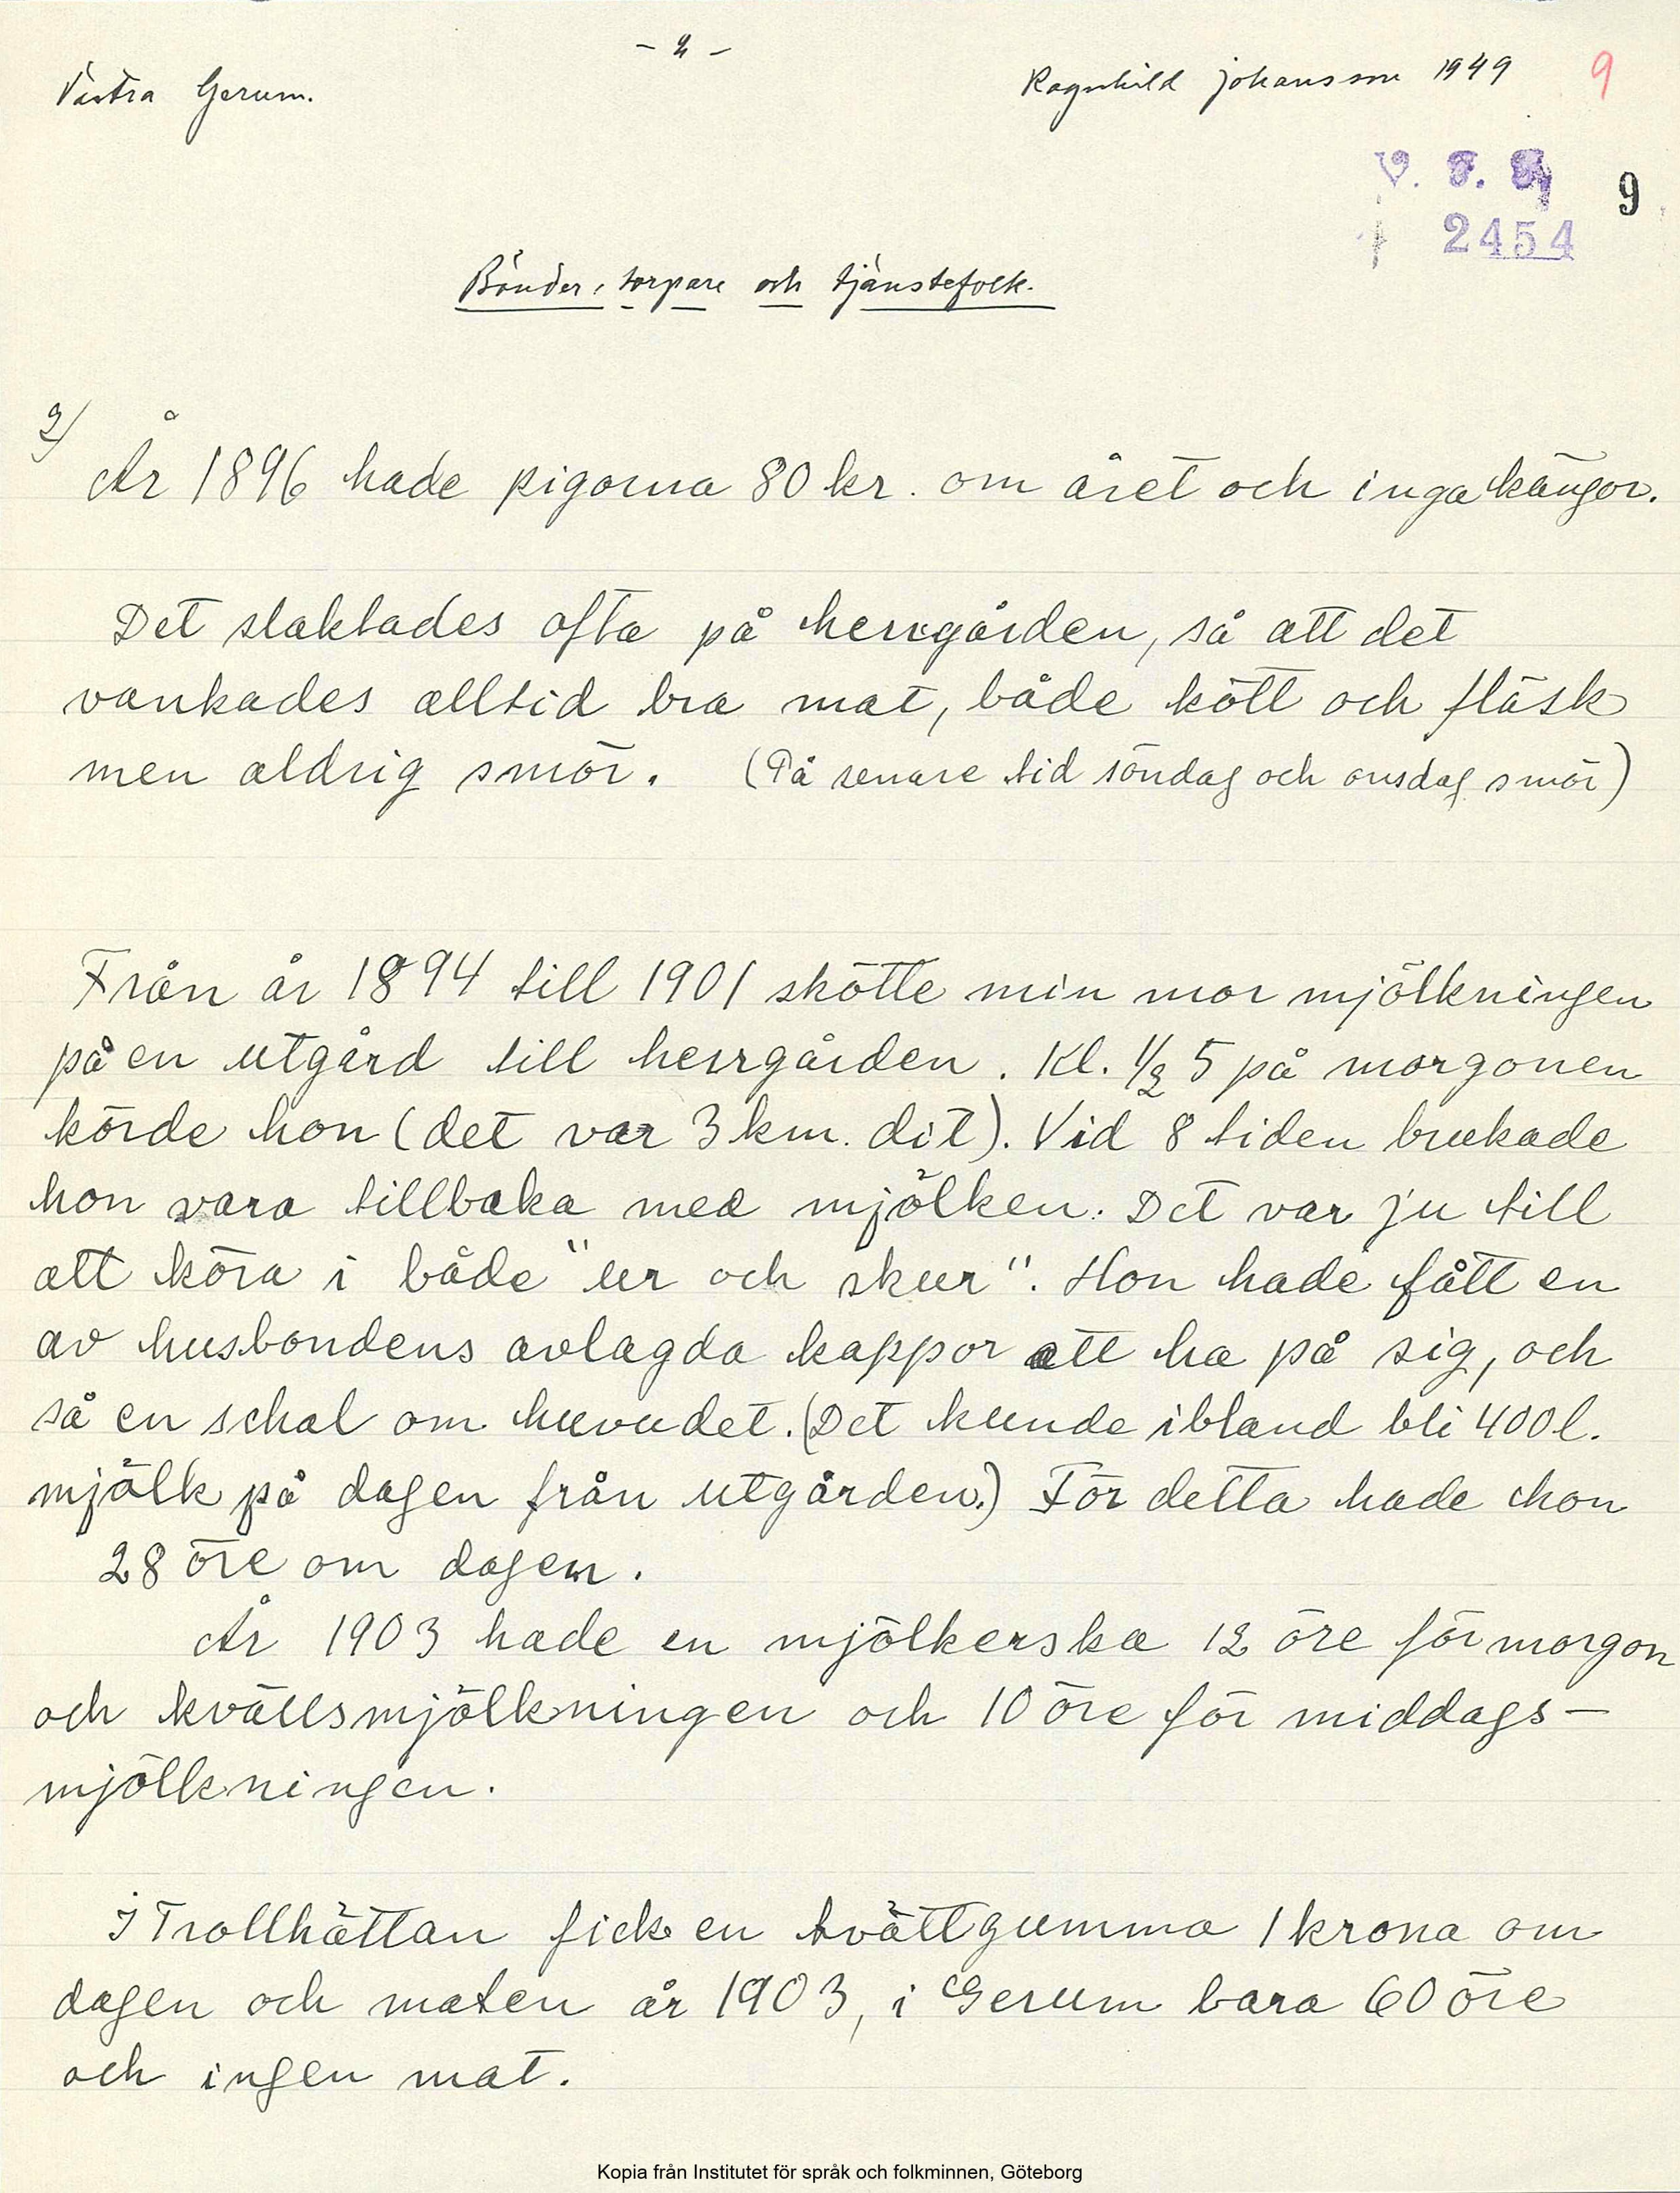 - 2 -
Västra Gerum.
Ragnhild Johansson 1949
9
V. F. F.
9
2454
Bönder, torpare och tjänstefolk.
2)
År 1896 hade pigorna 80 kr. om året och inga kängor.
Det slaktades ofta på herrgården, så att det
vankades alltid bra mat, både kött och fläsk
men aldrig smör. (På senare tid söndag och onsdag smör)
Från år 1894 till 1901 skötte min mor mjölkningen
på en utgård till herrgården. Kl. 1/2 5 på morgonen
körde hon (det var 3 km. dit). Vid 8 tiden brukade
hon vara tillbaka med mjölken. Det var ju till
att köra i både "ur och skur". Hon hade fått en
av husbondens avlagda kappor att ha på sig, och
så en schal om huvudet. (Det kunde ibland bli 400 l.
mjölk på dagen från utgården.) För detta hade hon
28 öre om dagen.
År 1903 hade en mjölkerska 12 öre för morgon
och kvällsmjölkningen och 10 öre för middags-
mjölkningen.
I Trollhättan fick en tvättgumma 1 krona om
dagen och maten år 1903, i Gerum bara 60 öre
och ingen mat.
Kopia från Institutet för språk och folkminnen, Göteborg